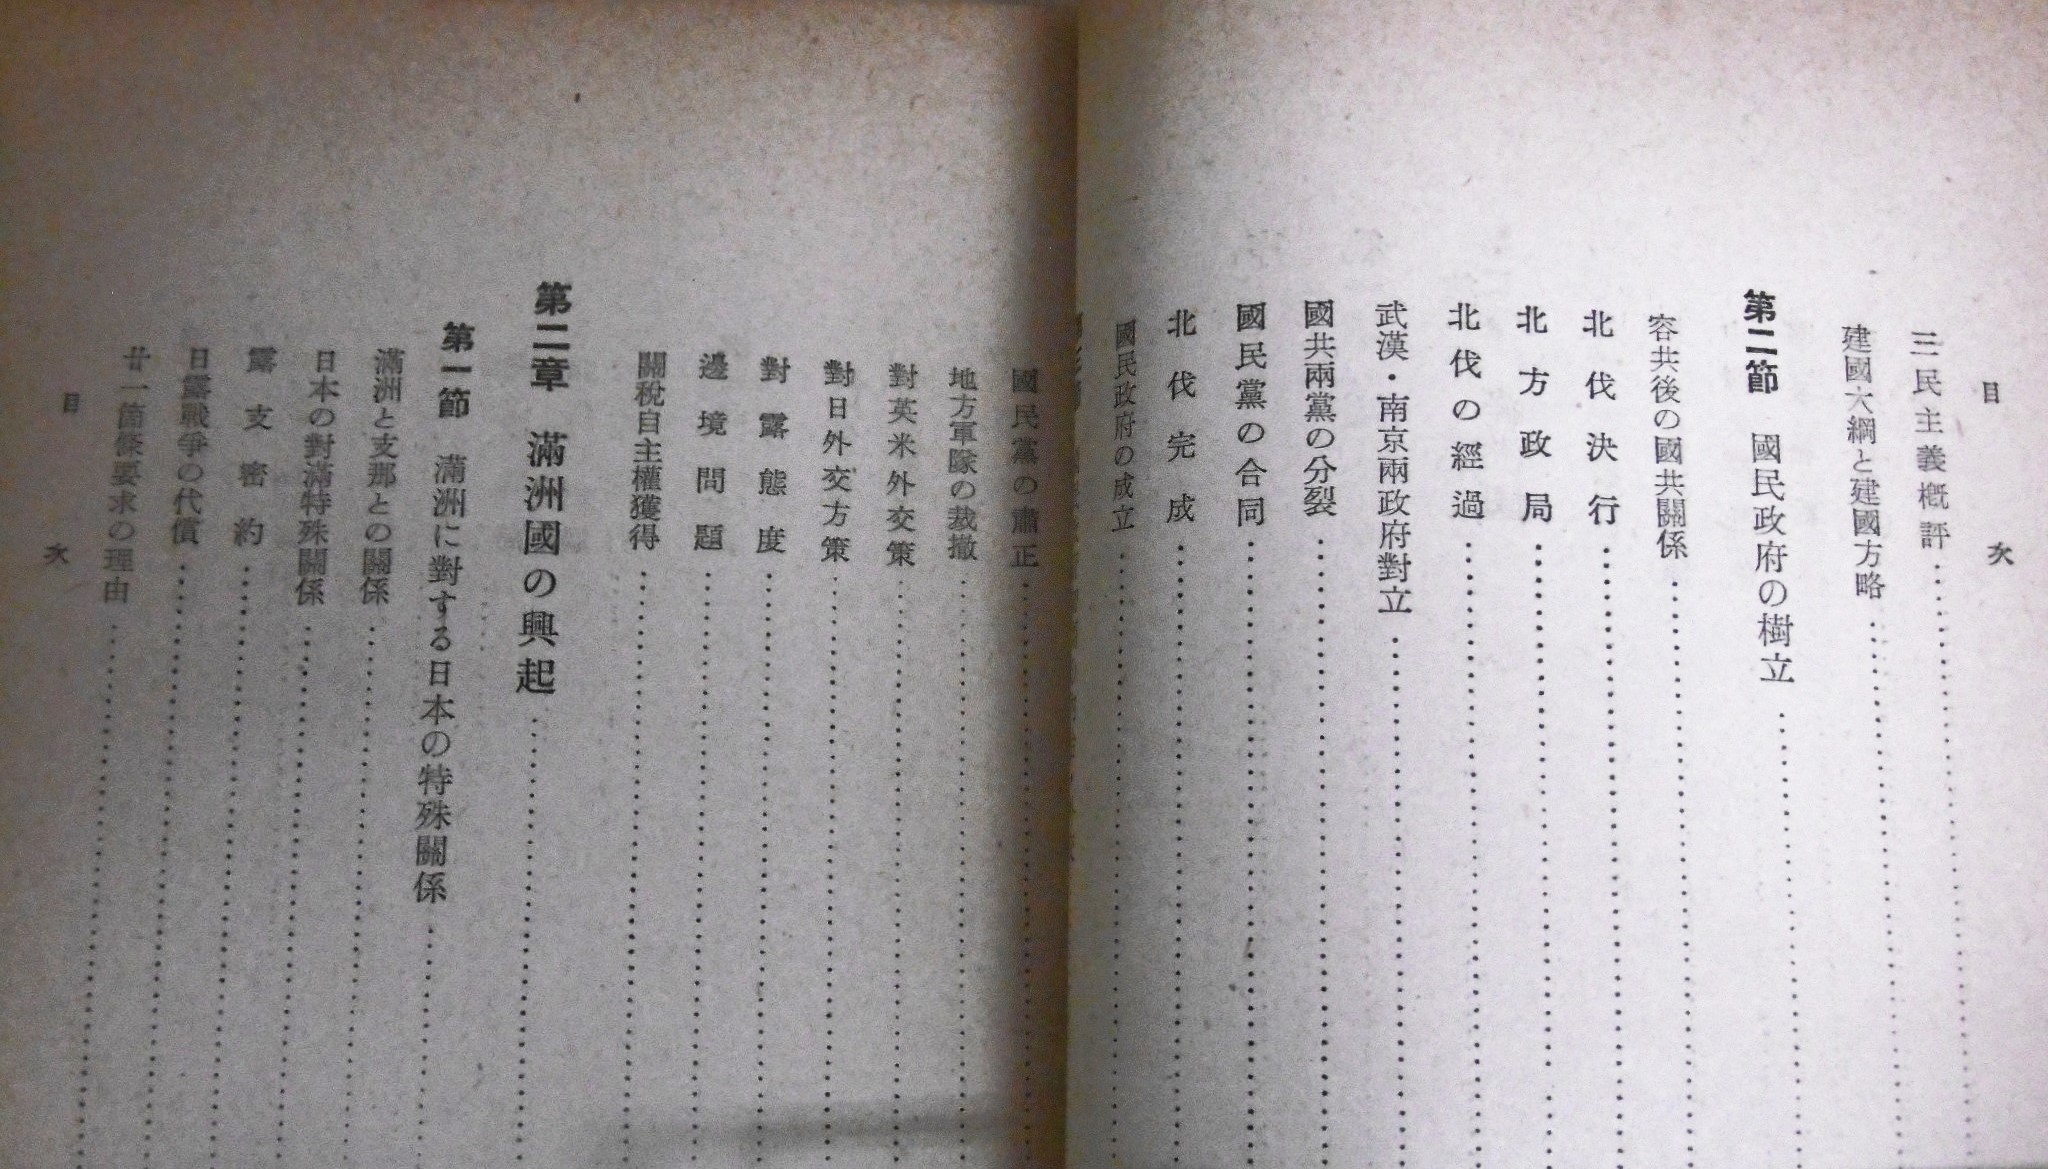 目次
三民主義概評
建國大綱と建國方略
第二節 國民政府の樹立
容共後の國共關係
北伐決行
北方政局
北伐の經過
武漢・南京兩政府對立
國共兩黨の分裂
國民黨の合同
北伐完成
國民政府の成立
國民黨の肅正
地方軍隊の裁撤
對英米外交策
對日外交方策
對露態度
邊境問題
關稅自主權獲得
第二章 滿洲國の興起
第一節 滿洲に對する日本の特殊關係
滿洲と支那との關係
日本の對滿特殊關係
露支密約
日露戰爭の代償
廿一箇條要求の理由
目次